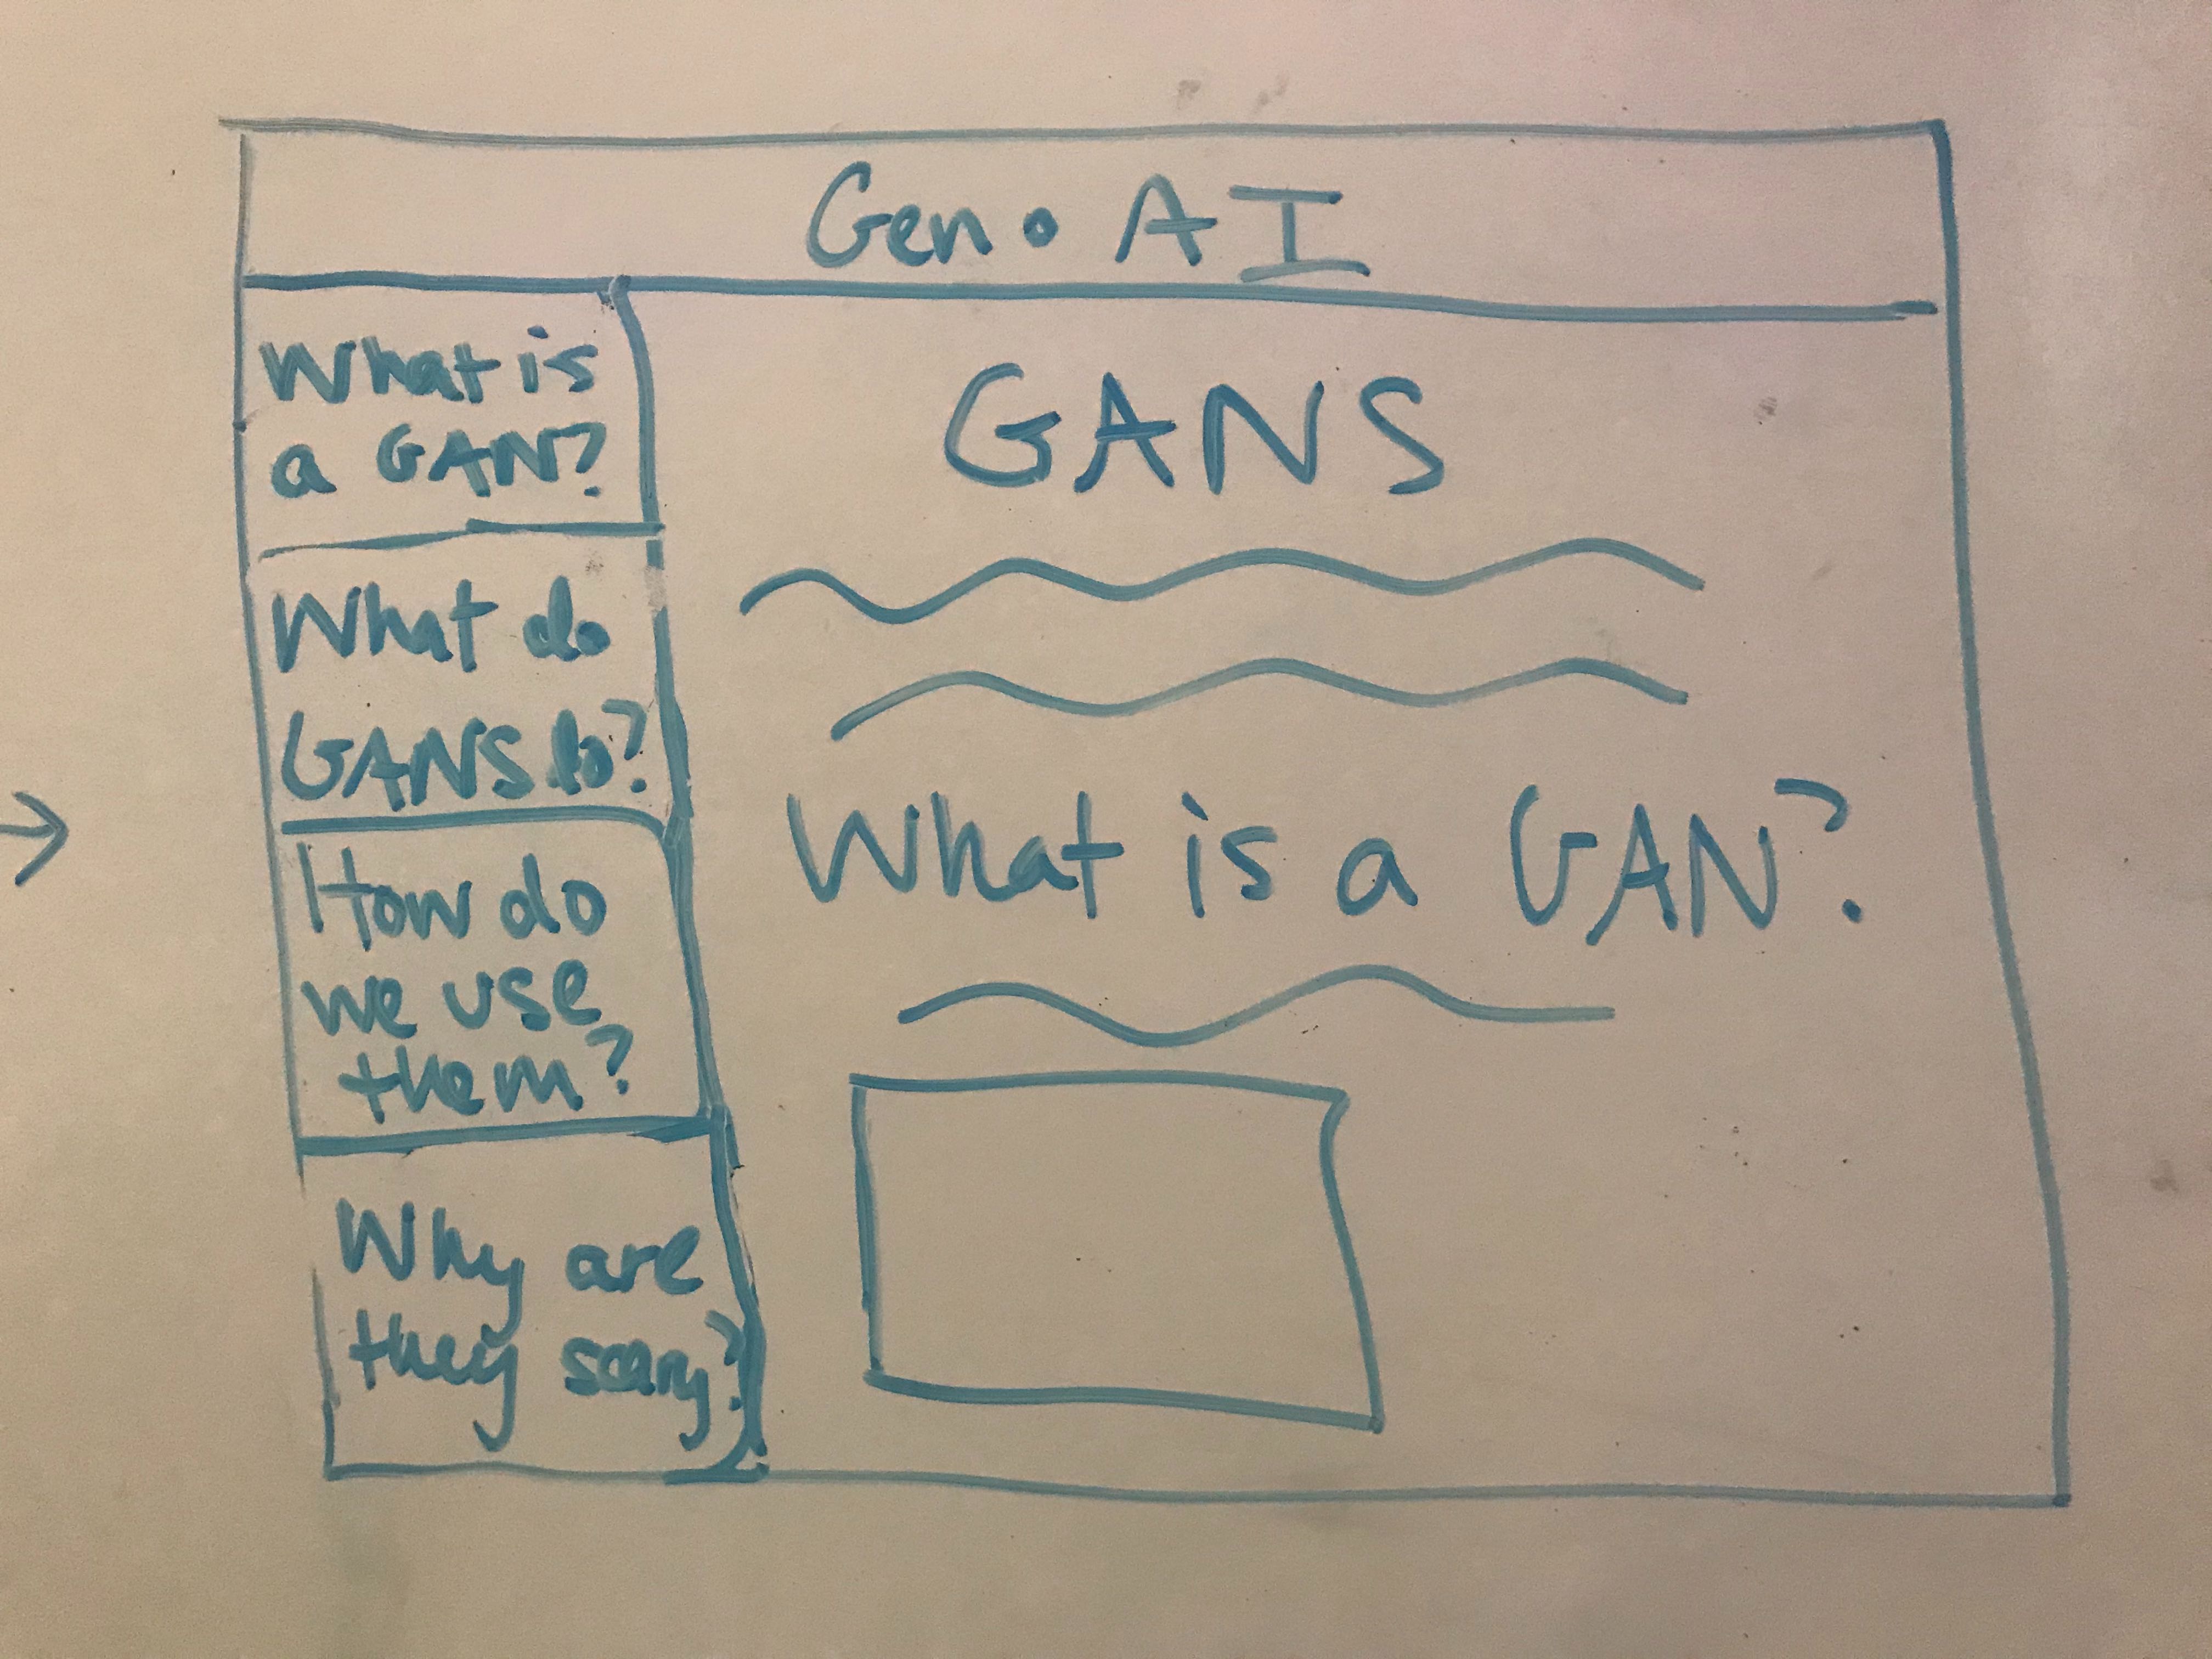 Gen • AI
What is
a GAN?
What do
GANS do?
How do
we use
them?
Why are
they scary?
GANS
What is a GAN?